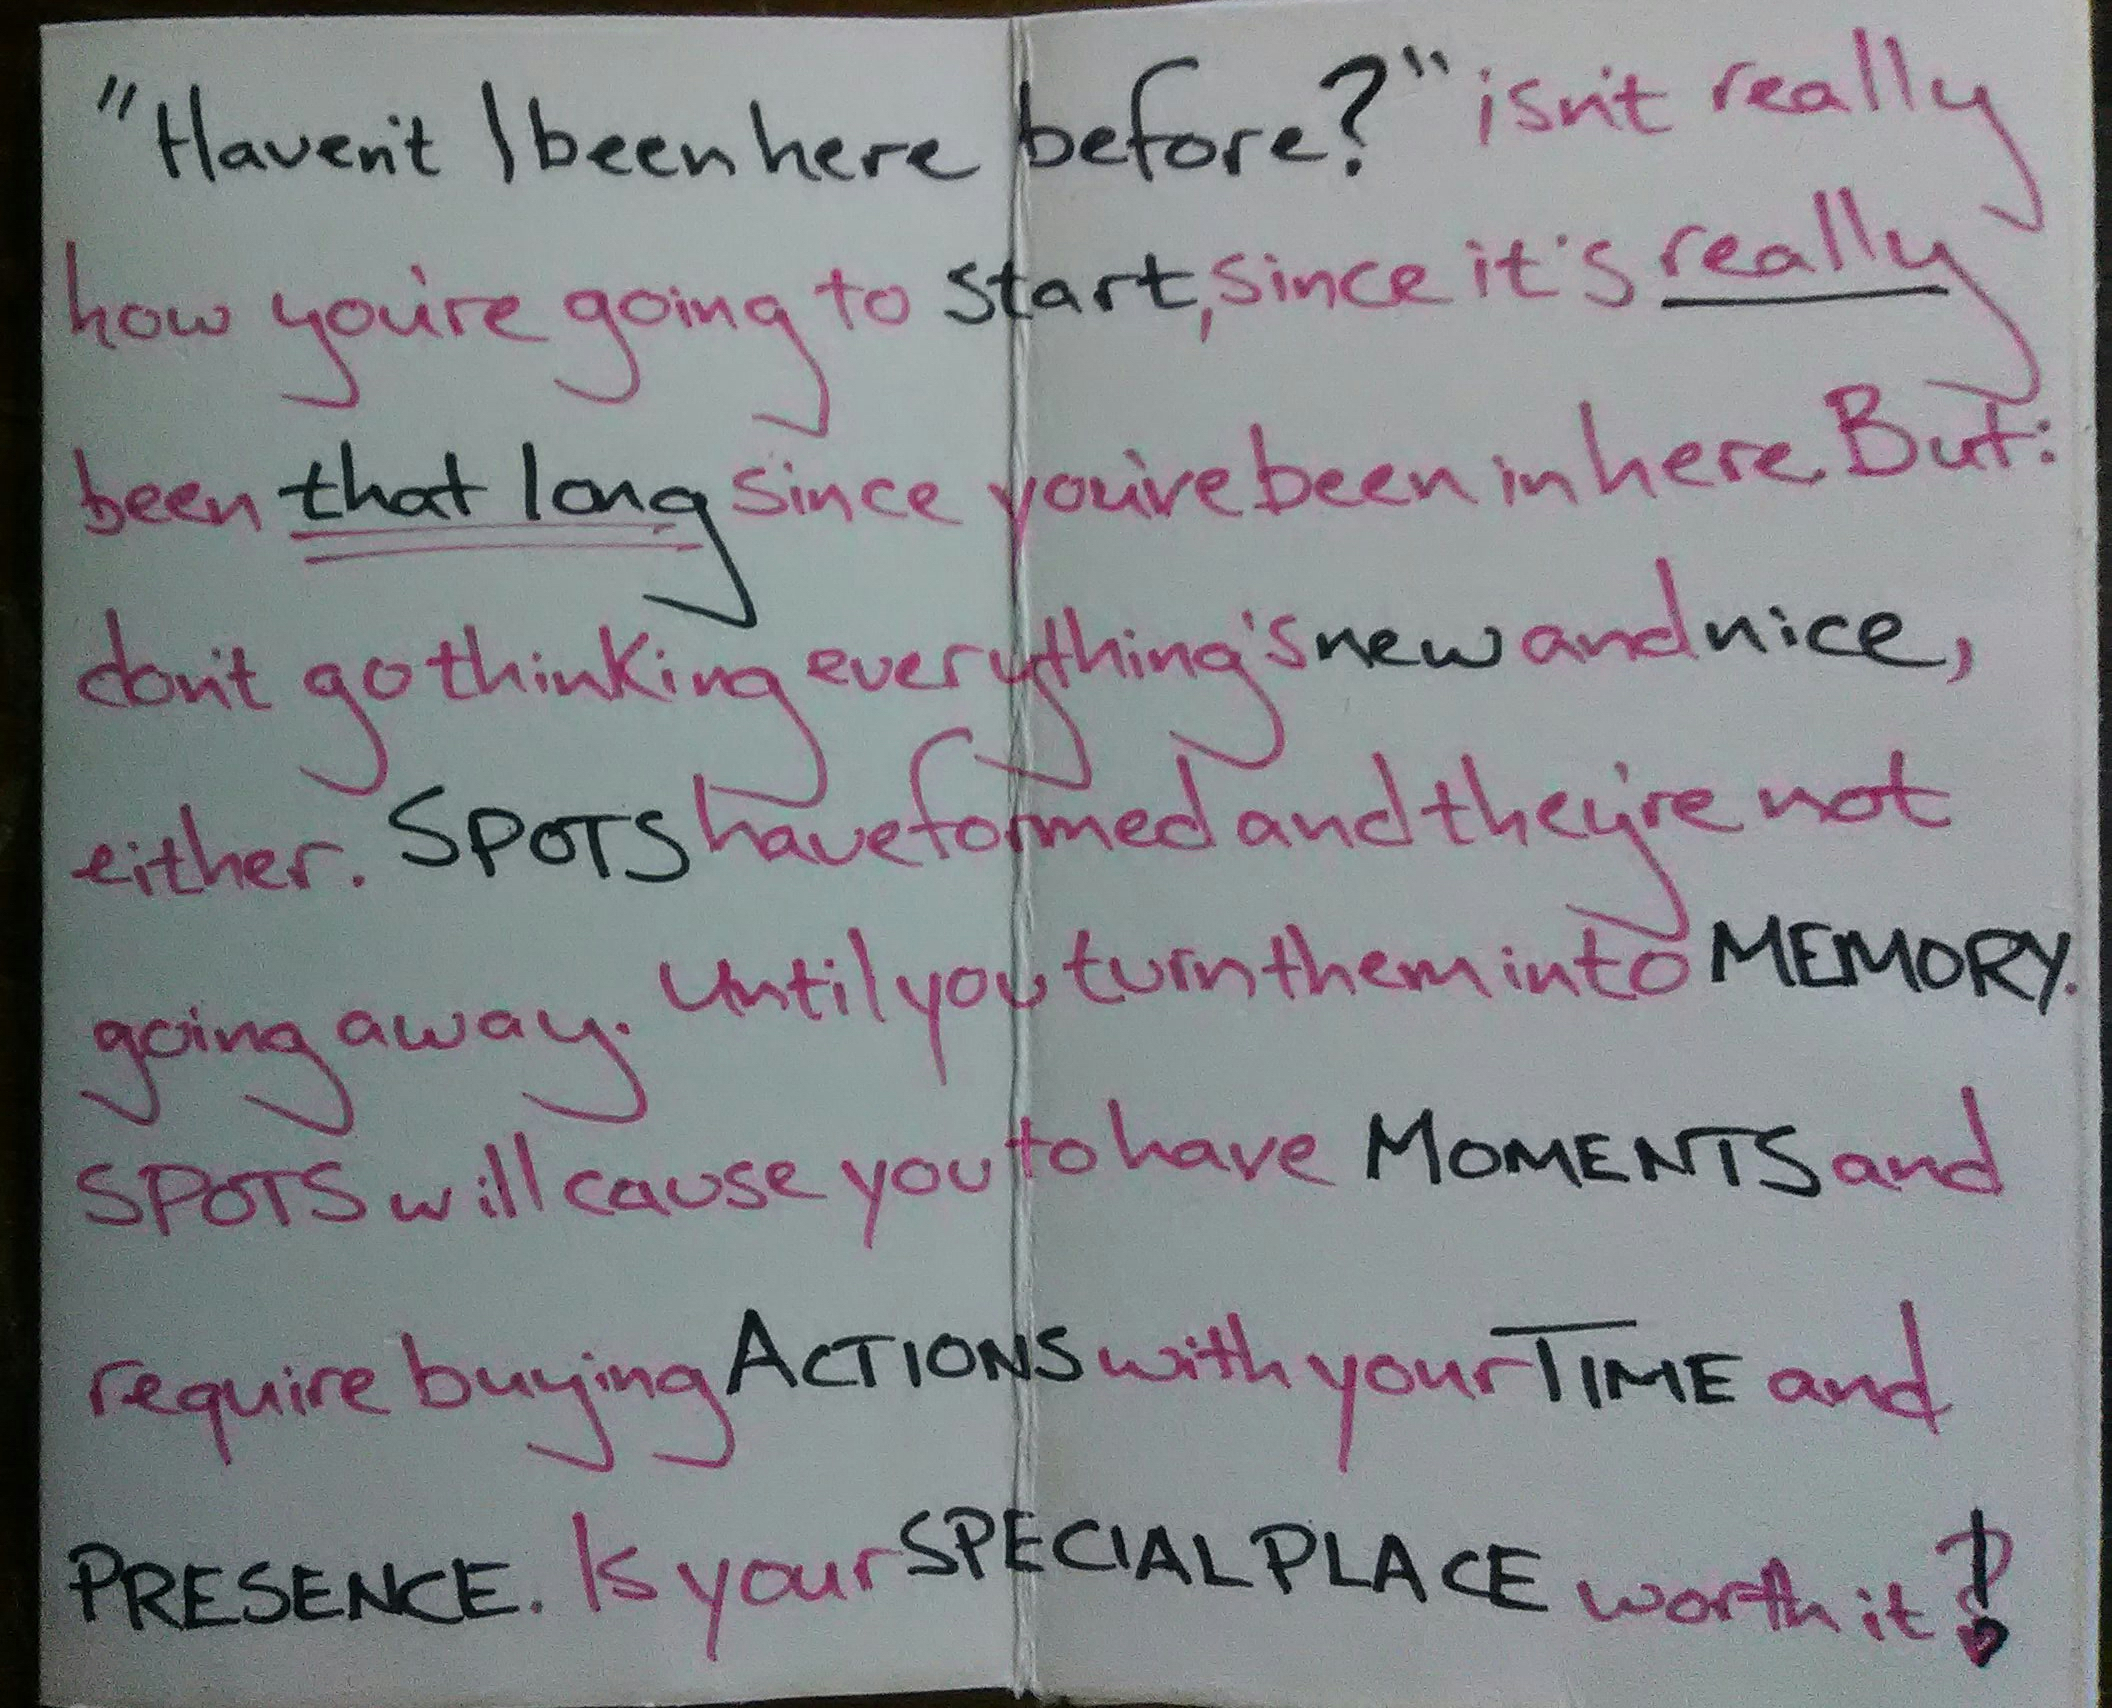 "Haven't I been here before?" isn't really
how you're going to start, since it's really
been that long since you've been in here. But:
don't go thinking everything's new and nice,
either. SPOTS have formed and they're not
going away. Until you turn them into MEMORY.
SPOTS will cause you to have MOMENTS and
require buying ACTIONS with your TIME and
PRESENCE. Is your SPECIAL PLACE worth it?!